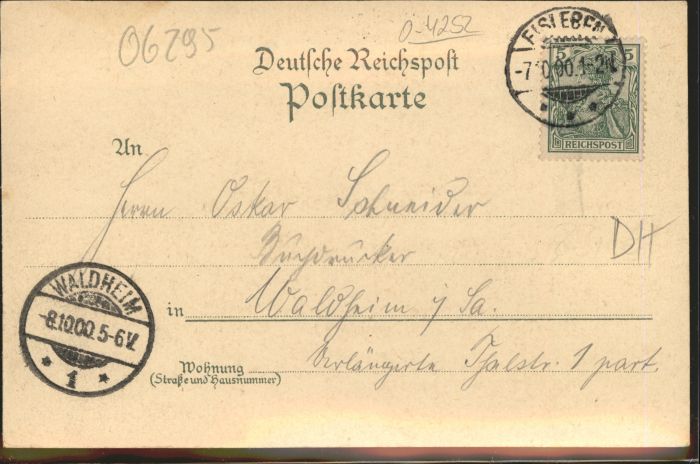 06295
0-4252
EISLEBEN
-7.10.00.1-2N.
5 5
REICHSPOST
Deutsche Reichspost
Postkarte
An
Herrn Oskar Schneider
Buchdrucker
DH
in Waldheim i/Sa.
Wohnung Verlängerte Thalstr. 1 part.
(Straße und Hausnummer)
WALDHEIM
-8.10.00.5-6V.
* 1 *